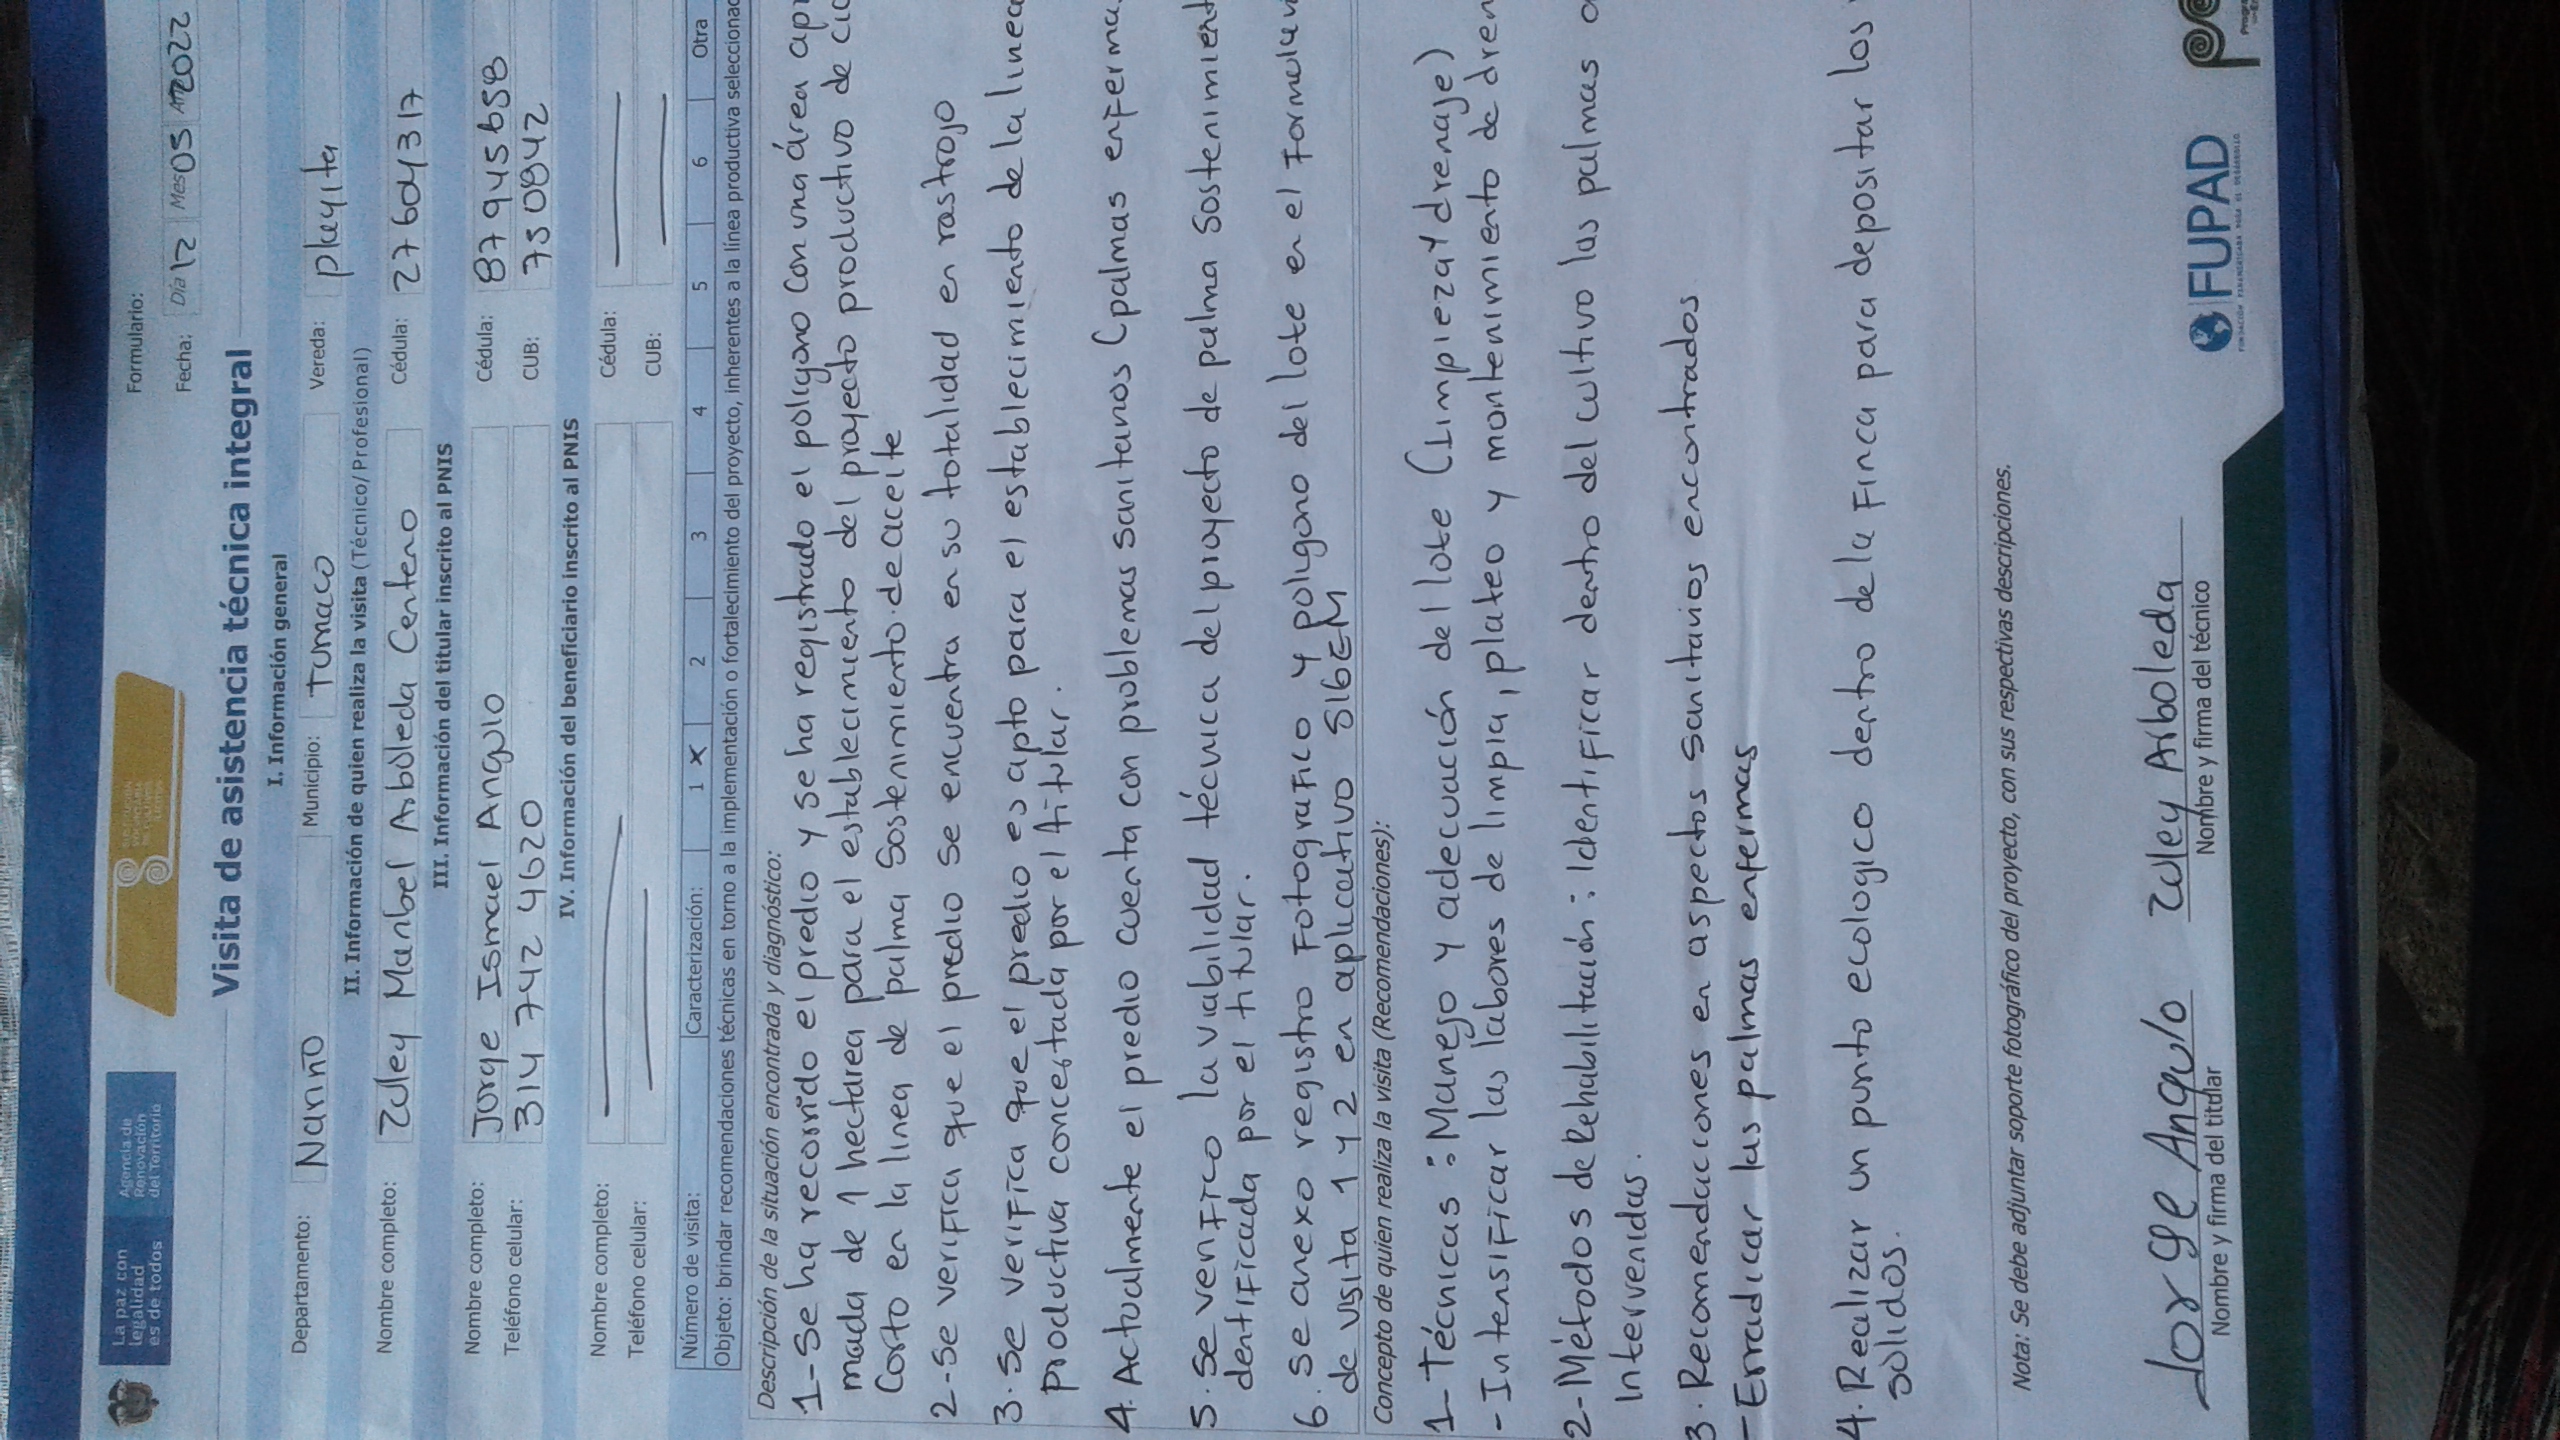 La paz con
legalidad
es de todos
Agencia de
Renovación
del Territorio
Formulario:
Fecha: Día 12 Mes 05 Año 2022
Visita de asistencia técnica integral
I. Información general
Departamento: Nariño Municipio: Tumaco Vereda: playita
II. Información de quien realiza la visita (Técnico/Profesional)
Nombre completo: Zuley Maribel Arboleda Centeno Cédula: 27604317
III. Información del titular inscrito al PNIS
Nombre completo: Jorge Ismael Angulo Cédula: 87945658
Teléfono celular: 314 742 4620 CUB: 750842
IV. Información del beneficiario inscrito al PNIS
Nombre completo: Cédula:
Teléfono celular: CUB:
Número de visita: Caracterización: 1 X 2 3 4 5 6 Otra
Objeto: brindar recomendaciones técnicas en torno a la implementación o fortalecimiento del proyecto, inherentes a la línea productiva seleccionad
Descripción de la situación encontrada y diagnóstico:
1-Se ha recorrido el predio y se ha registrado el poligono con una área apr
mada de 1 hectárea para el establecimiento del proyecto productivo de cic
Corto en la linea de palma Sostenimiento de aceite
2-Se verifica que el predio se encuentra en su totalidad en rastrojo
3. Se verifica que el predio es apto para el establecimiento de la linea
Productiva concertada por el titular.
4. Actualmente el predio cuenta con problemas sanitarios (palmas enferma
5. Se verifico la viabilidad técnica del proyecto de palma sostenimient
dentificada por el titular.
6. Se anexo registro fotografico y poligono del lote en el formular
de visita 1 y 2 en aplicativo SIGEM
Concepto de quien realiza la visita (Recomendaciones):
1- Técnicas: Manejo y adecuación del lote (Limpieza y drenaje)
- Intensificar las labores de limpia, plateo y mantenimiento de dren
2- Métodos de Rehabilitación: Identificar dentro del cultivo las palmas a
Intervenidas.
3. Recomendaciones en aspectos sanitarios encontrados
- Erradicar las palmas enfermas
4. Realizar un punto ecologico dentro de la finca para depositar los
sólidos.
Nota: Se debe adjuntar soporte fotográfico del proyecto, con sus respectivas descripciones.
Jorge Angulo
Nombre y firma del titular
Zuley Arboleda
Nombre y firma del técnico
FUPAD